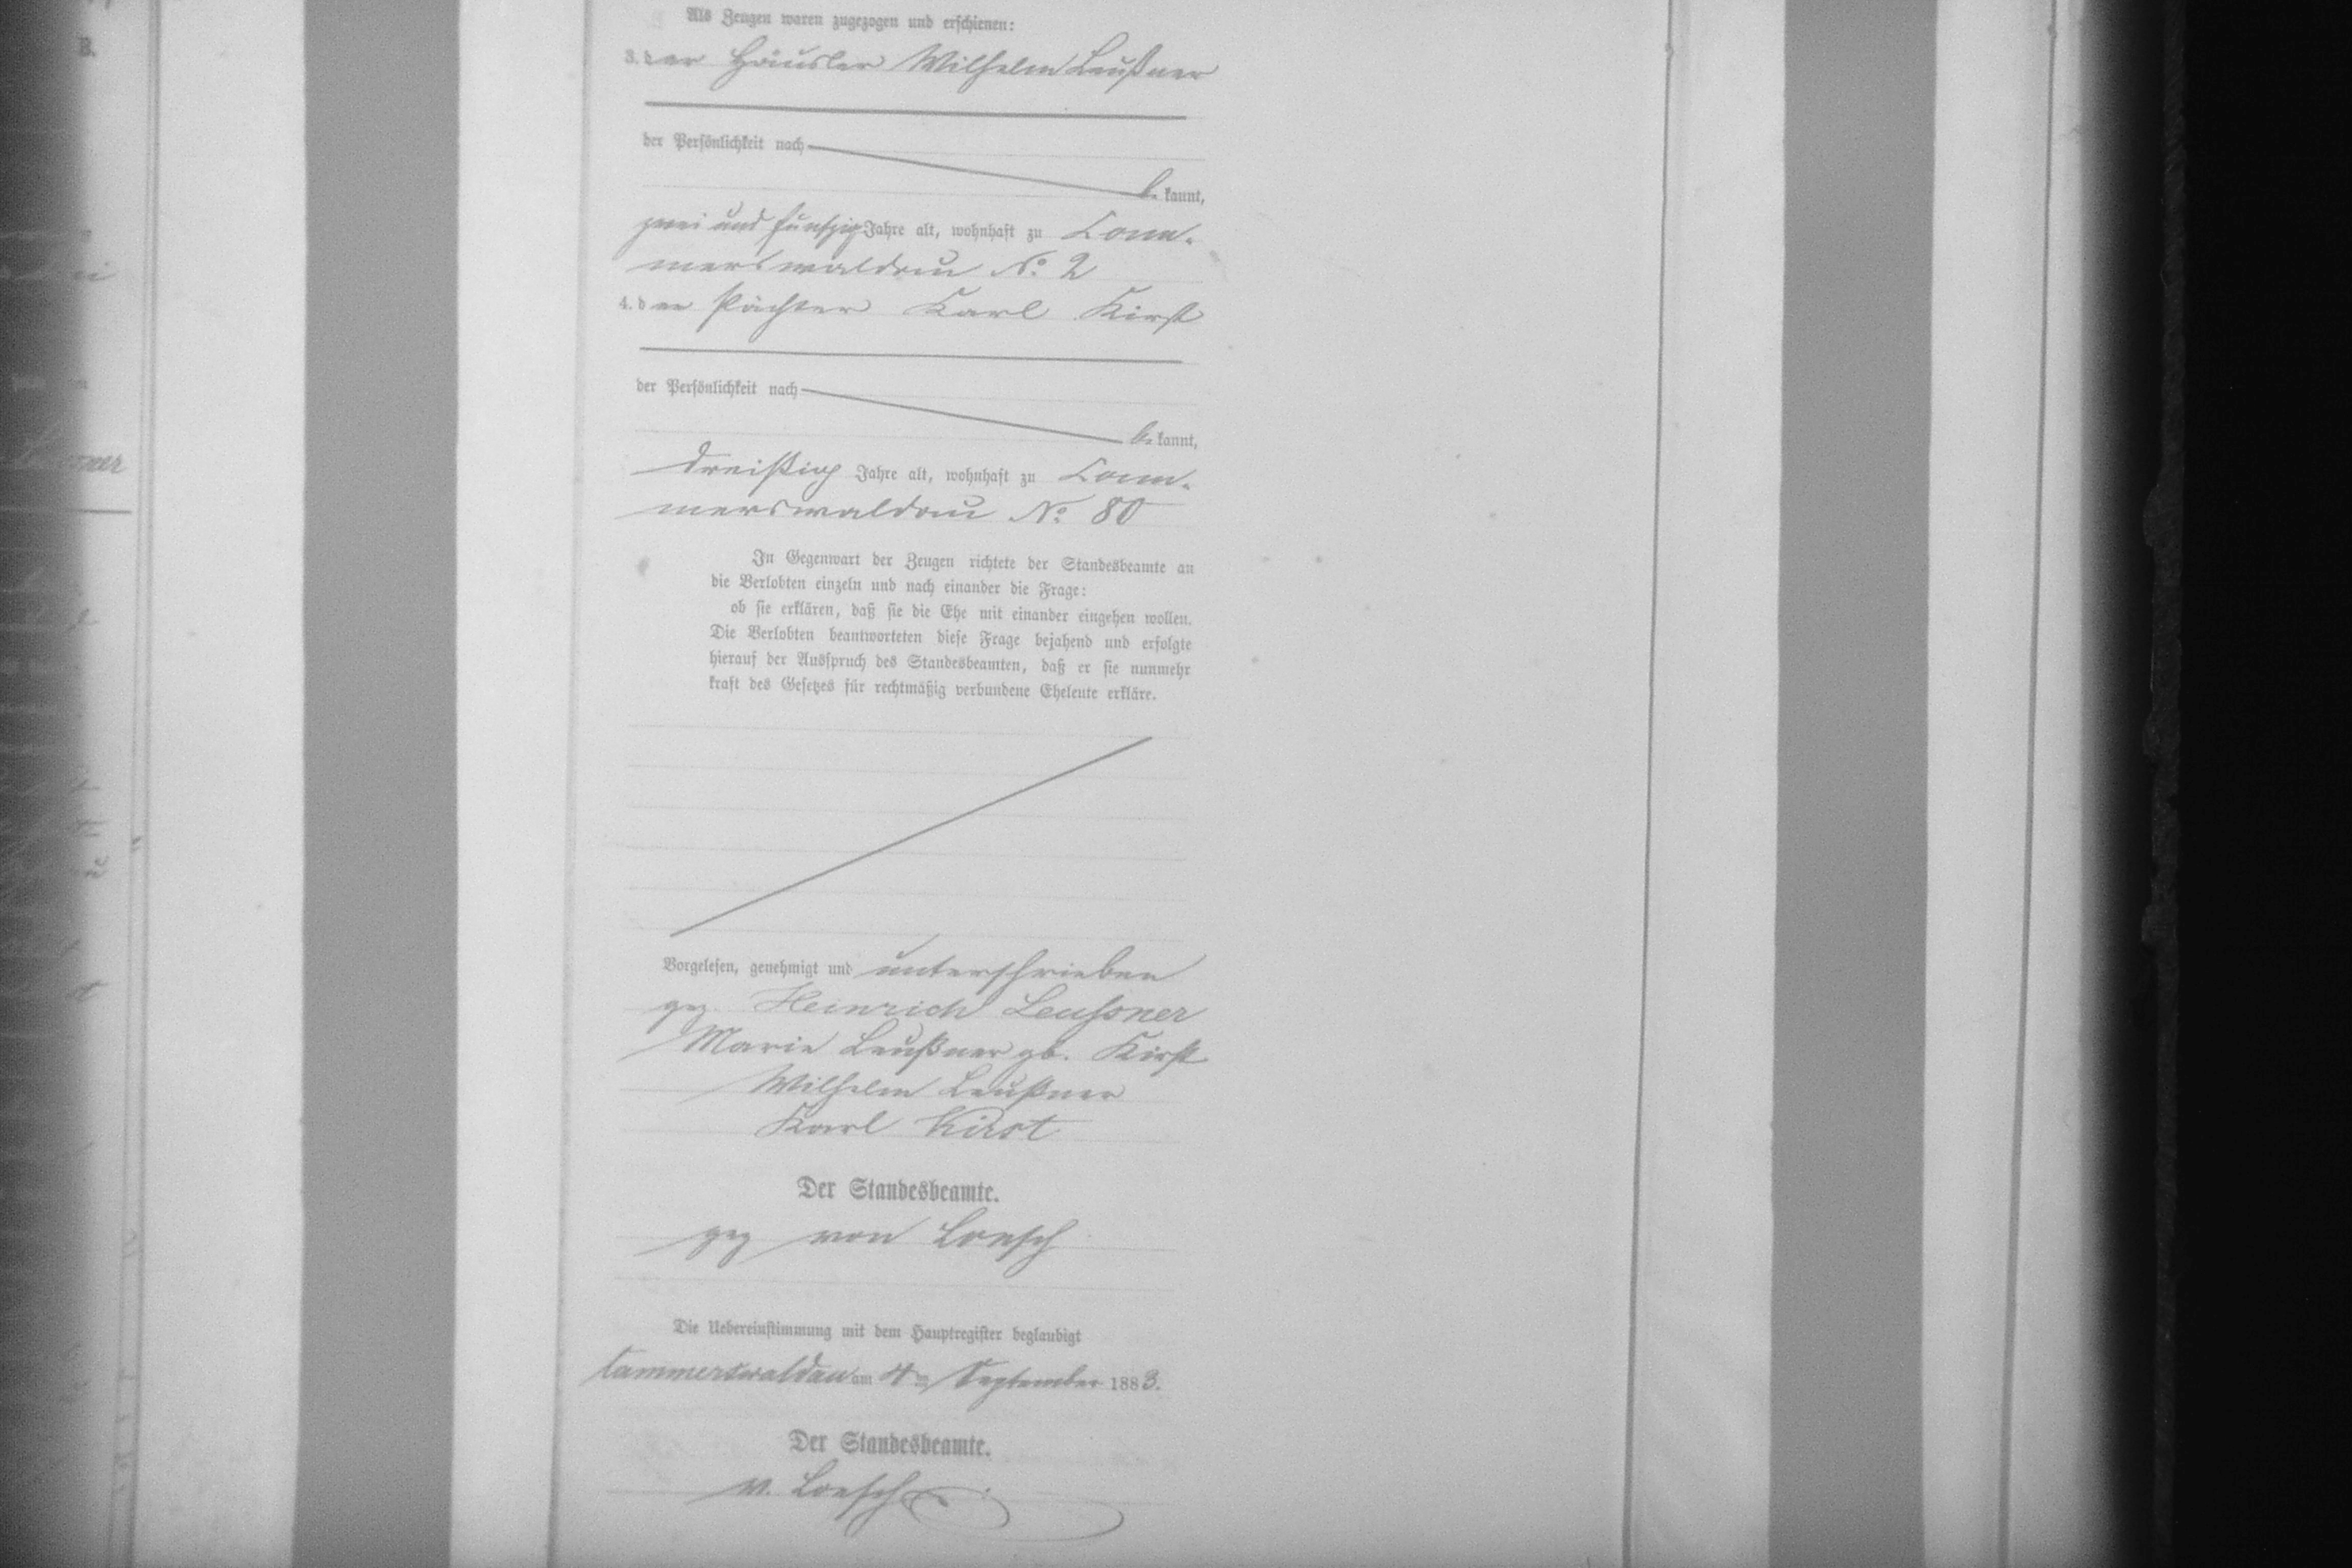 Als Zeugen waren zugezogen und erschienen:
3. der Häusler Wilhelm Leußner
der Persönlichkeit nach
be kannt,
zwei und fünfzig Jahre alt, wohnhaft zu Cam-
merswaldau No. 2
4. der Pächter Karl Kirst
der Persönlichkeit nach
be kannt,
dreißig Jahre alt, wohnhaft zu Cam-
merswaldau No. 80
In Gegenwart der Zeugen richtete der Standesbeamte an
die Verlobten einzeln und nach einander die Frage:
ob sie erklären, daß sie die Ehe mit einander eingehen wollen.
Die Verlobten beantworteten diese Frage bejahend und erfolgte
hierauf der Ausspruch des Standesbeamten, daß er sie nunmehr
kraft des Gesetzes für rechtmäßig verbundene Eheleute erkläre.
Vorgelesen, genehmigt und unterschrieben
gez. Heinrich Leussner
Marie Leußner gb. Kirst
Wilhelm Leußner
Karl Kirst
Der Standesbeamte.
gez von Loesch
Die Uebereinstimmung mit dem Hauptregister beglaubigt
Cammerswaldau am 4ten September 1883.
Der Standesbeamte.
v. Loesch